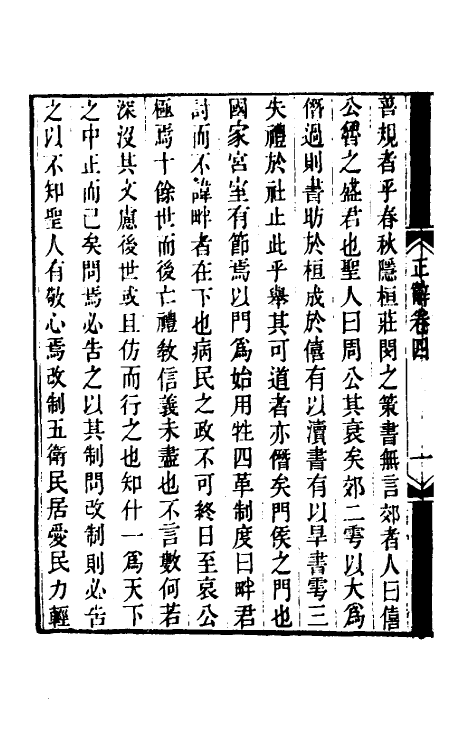 善規者乎春秋隱桓莊閔之策書無言郊者人曰僖
公魯之盛君也聖人曰周公其衰矣郊二雩以大爲
僭過則書昉於桓成於僖有以瀆書有以旱書雩三
失禮於社止此乎舉其可道者亦僭矣門矦之門也
國家宮室有節焉以門爲始用牲四革制度曰畔君
討而不諱畔者在下也病民之政不可終日至哀公
極焉十餘世而後亡禮敎信義未盡也不言數何若
深沒其文慮後世或且仿而行之也知什一爲天下
之中正而已矣問焉必吿之以其制問改制則必吿
之以不知聖人有敬心焉改制五衛民居愛民力輕
正辭卷四
一